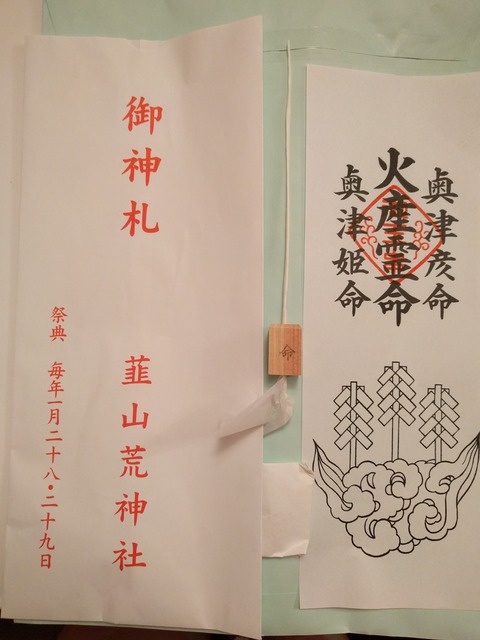 御神札
韮山荒神社
祭典 毎年一月二十八・二十九日
命
奥津彦命
火産霊命
奥津姫命